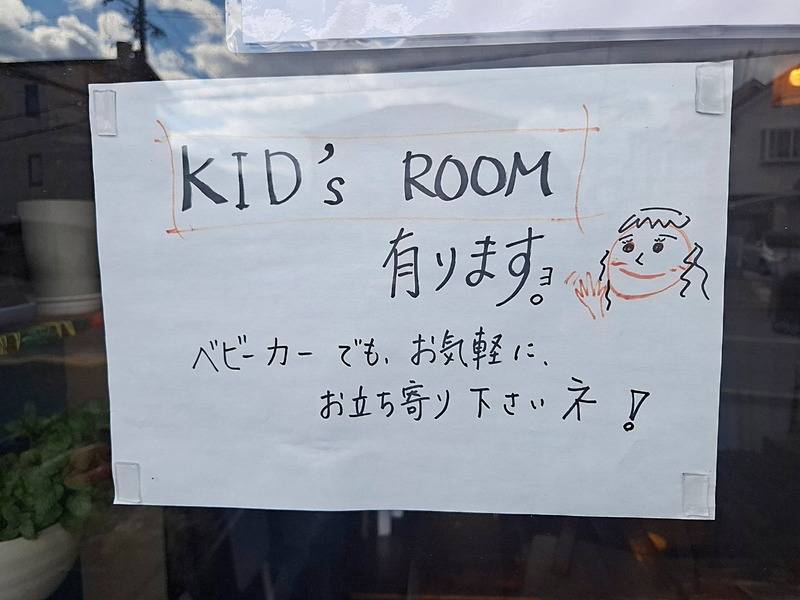 KID's ROOM
有ります。ヨ
ベビーカーでも、お気軽に、
お立ち寄り下さいネ!